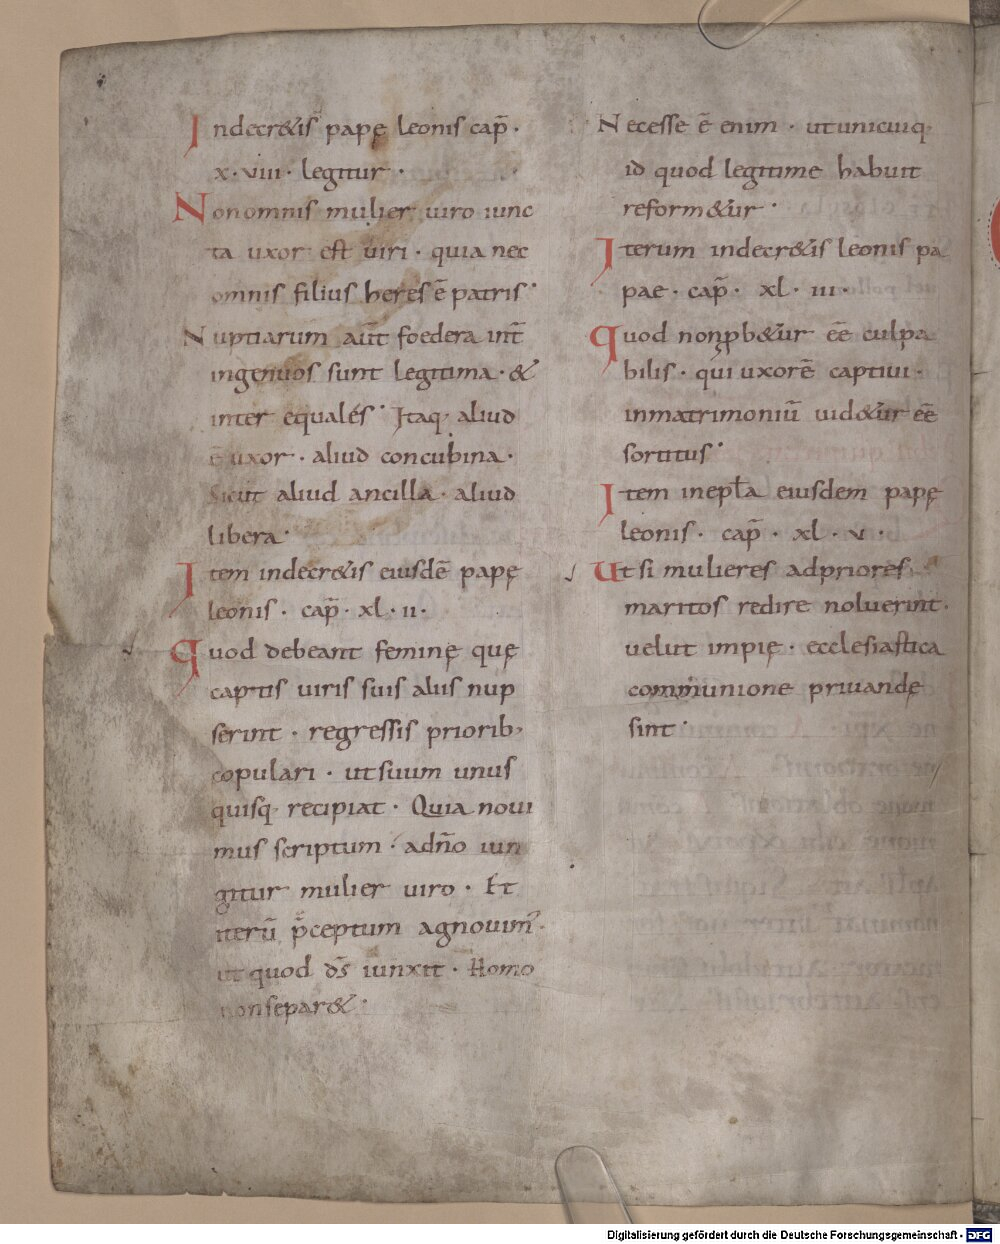 Indecr&is papę leonis cap̄·
x·viii· legitur·
Nonomnis mulier uiro iunc
ta uxor est uiri· quia nec
omnis filius heres ē patris·
Nuptiarum aut̄ foedera int̄
ingenuos sunt legitima·&
inter equales· Itaq; aliud
ē uxor· aliud concubina·
Sicut aliud ancilla· aliud
libera·
Item indecr&is eiusdē papę
leonis· cap̄· xl· ii·
Quod debeant feminę quę
captis uiris suis aliis nup
serint· regressis priorib;
copulari· utsuum unus
quisq; recipiat· Quia noui
mus scriptum· adn̄o iun
gitur mulier uiro· Et
iterū p̄ceptum agnouim᾽·
ut quod d̄s iunxit· Homo
nonsepar&·
Necesse ē enim· utunicuiq;
id quod legitime habuit
reform&ur·
Iterum indecr&is leonis pa
pae· cap̄· xl· iii·
Quod nonꝓb&ur eē culpa
bilis· qui uxorē captiui·
inmatrimoniū uid&ur eē
sortitus·
Item inepl̄a eiusdem papę
leonis· cap̄· xl· v·
Ut si mulieres adpriores
maritos redire noluerint·
uelut impię· ecclesiastica
communione priuandę
sint·
Digitalisierung gefördert durch die Deutsche Forschungsgemeinschaft - DFG